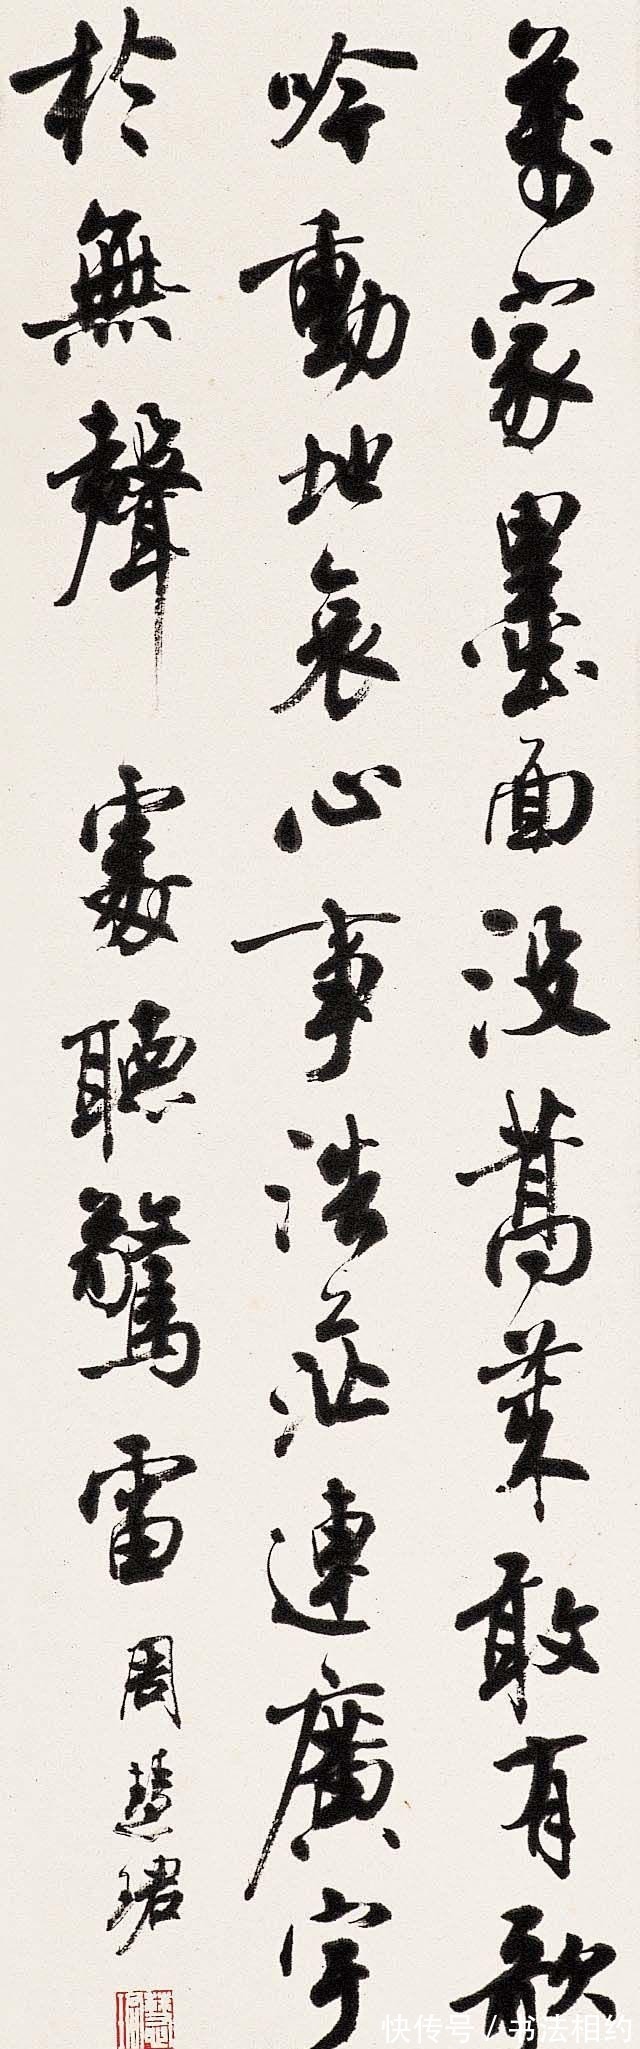 萬家墨面没蒿萊敢有歌
吟動地哀心事浩茫連廣宇
於無聲處聽驚雷
周慧珺
快传号 / 书法相约